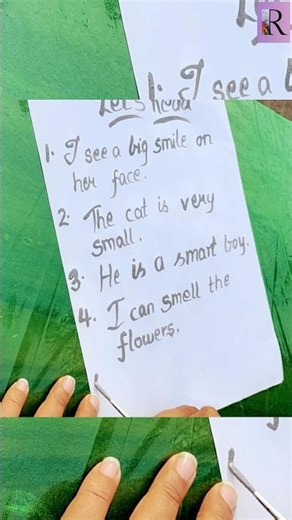 R
I see a
Let's Read
1. I see a big smile on
her face.
2. The cat is very
small.
3. He is a smart boy.
4. I can smell the
flowers.